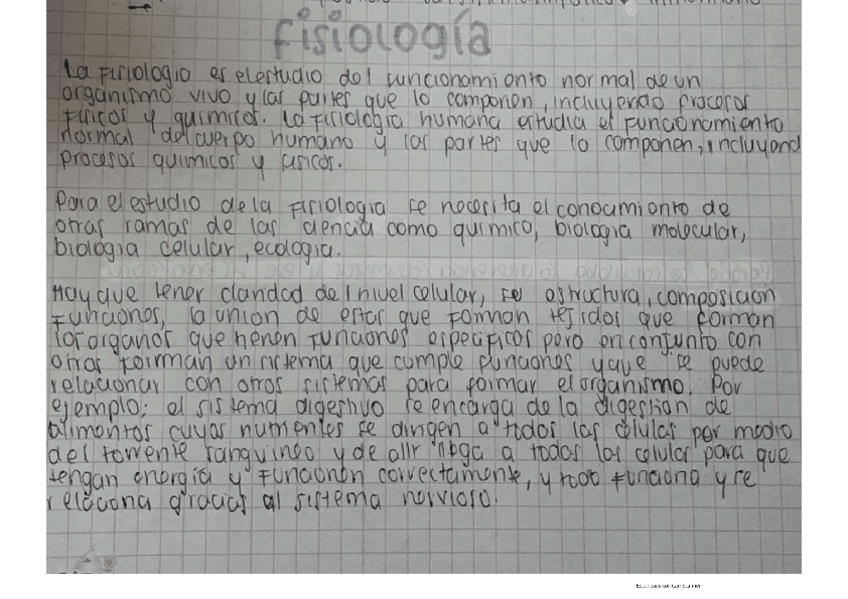 fisiología
La fisiologia es el estudio del funcionamiento normal de un
organismo vivo y las partes que lo componen, incluyendo procesos
fisicos y quimicos. La fisiologia humana estudia el funcionamiento
normal del cuerpo humano y las partes que lo componen, incluyend
procesos quimicos y fisicos.
Para el estudio de la fisiologia se necesita el conocimiento de
otras ramas de las ciencia como quimico, biologia molecular,
biologia celular, ecologia.
Hay que tener claridad del nivel celular, se estructura, composicion
funciones, la union de estas que forman tejidos que forman
los organos que tienen funciones especificos pero en conjunto con
otros forman un sistema que cumple funciones y que se puede
relacionar con otros sistemas para formar el organismo. Por
ejemplo: el sistema digestivo se encarga de la digestion de
alimentos cuyos nutrientes se dirigen a todos las celulas por medio
del torrente sanguineo y de alli llega a todos las celulas para que
tengan energia y funcionen correctamente, y todo funciona y se
relaciona gracias al sistema nervioso.